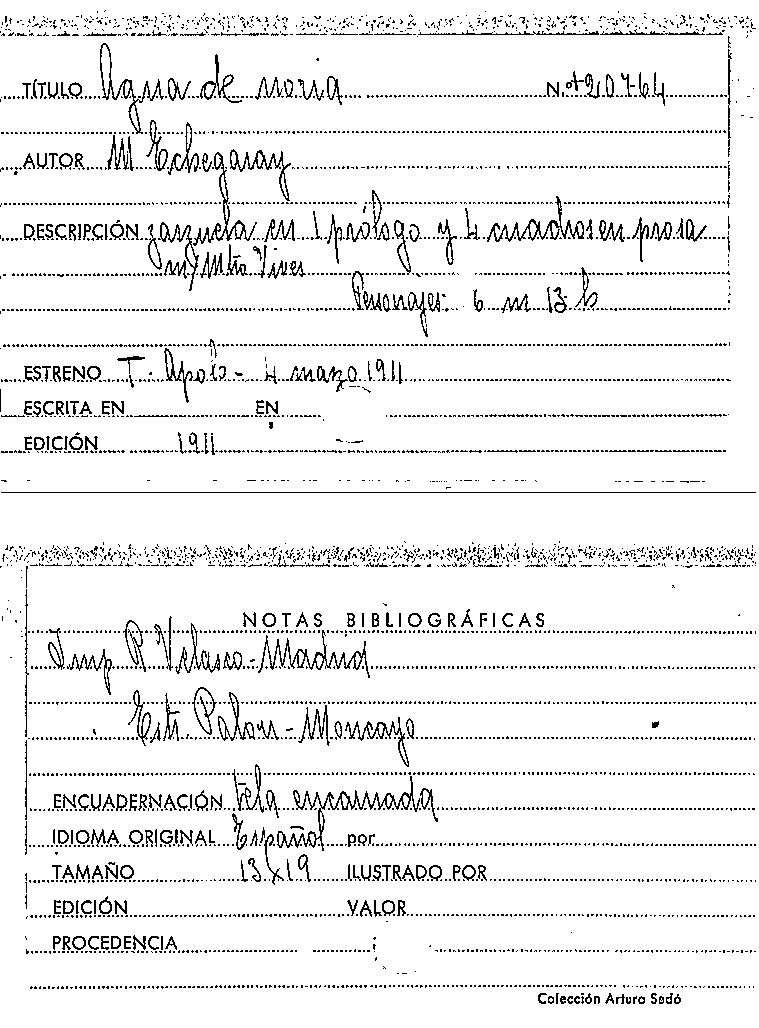 TÍTULO Agua de noria N.º 20764
AUTOR M Echegaray
DESCRIPCIÓN zarzuela en 1 prólogo y 4 cuadros en prosa
m/ Mtro Vives
Personajes: 6 m 13 h
ESTRENO T. Apolo - 4 marzo 1911
ESCRITA EN EN
EDICIÓN 1911
NOTAS BIBLIOGRÁFICAS
Imp R Velasco - Madrid
Estr. Palou - Moncayo
ENCUADERNACIÓN tela encarnada
IDIOMA ORIGINAL Español por
TAMAÑO 13x19 ILUSTRADO POR
EDICIÓN VALOR
PROCEDENCIA
Colección Arturo Sedó